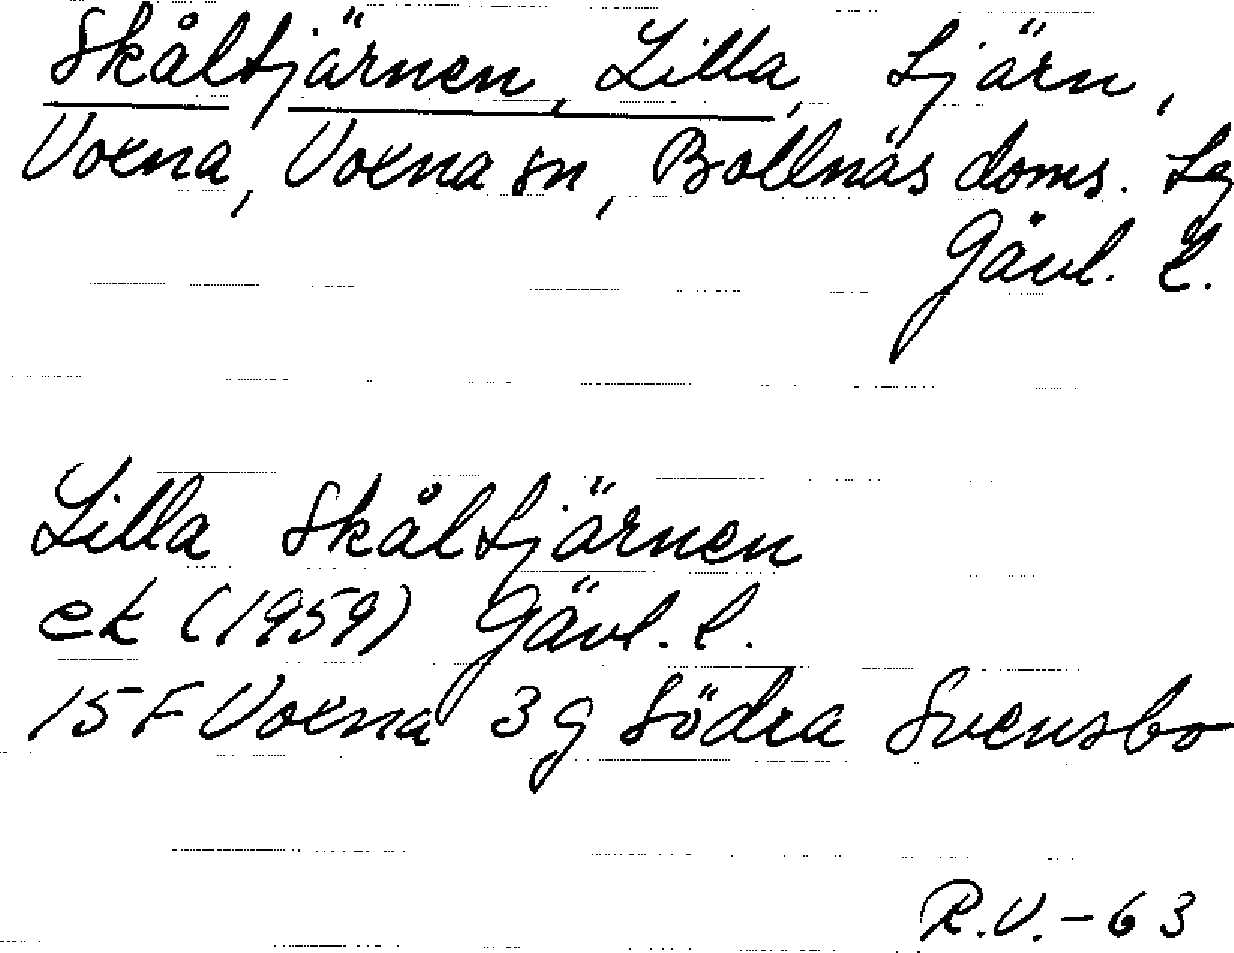 Skåltjärnen, Lilla, tjärn,
Voxna, Voxna sn, Bollnäs doms. tg
Gävl. l.
Lilla Skåltjärnen
ek (1959) Gävl. l.
15 F Voxna 3 g Södra Svensbo
R.V.-63